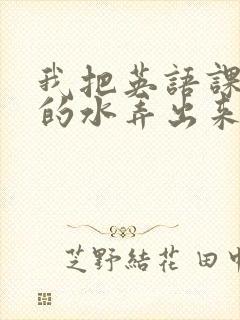 我把英語課
的水弄出來
芝野結花 田中